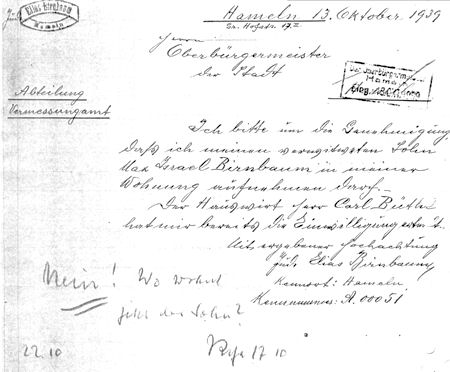 Jüd. Elias Birnbaum
Hameln
Hameln 13. Oktober 1939
Herrn
Oberbürgermeister
der Stadt
Der Oberbürgermeister
Hameln
Eing.
Abteilung
Vermessungamt
Ich bitte um die Genehmigung,
daß ich meinen verwitweten Sohn
Max Israel Birnbaum in meiner
Wohnung aufnehmen darf.
Der Hauswirt Herr Carl
hat mir bereits die Einwilligung erteilt.
Mit ergebener Hochachtung
Jüd. Elias Birnbaum
Kennort: Hameln
Kennnummer: A. 00051
Nein! Wo wohnt
jetzt der Sohn?
22.10
17 10